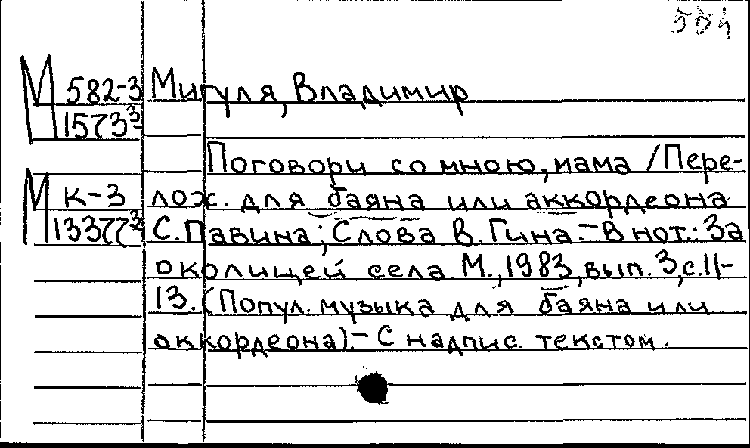 554
М 582-3 Мигуля, Владимир
1573³
Поговори со мною, мама /Пере-
М К-3 лож. для баяна или аккордеона
С. Павина; Слова В. Гина.- В нот.: За
околицей села М., 1983, вып. 3, с. 11-
13. (Попул. музыка для баяна или
аккордеона).- С надпис. текстом.